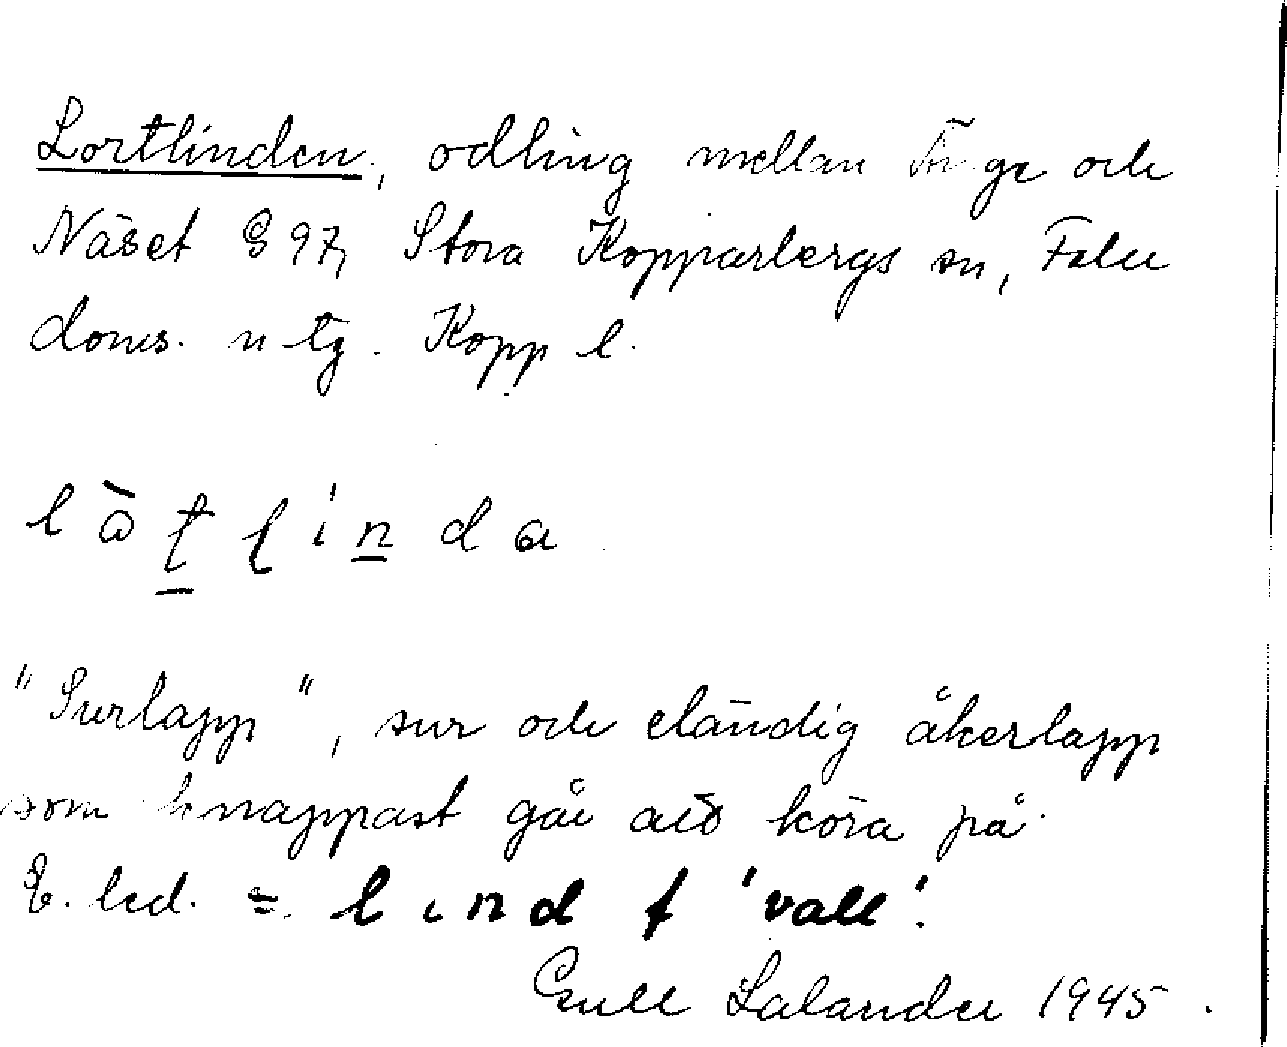 Lortlinden, odling mellan och
Näset G 97, Stora Kopparbergs sn, Falu
doms. n tg. Kopp l.
l ò t l i n d a
"Surlapp", sur och eländig åkerlapp
som knappast går att köra på.
E. led. = lind f 'vall'.
Gull Lalander 1945.